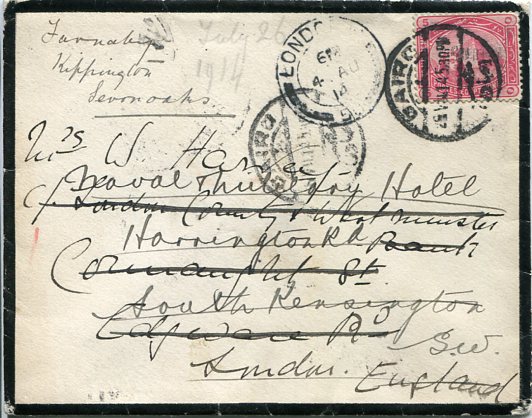 Farnaby
Kippington
Sevenoaks.
July 26
1914
LONDON
CAIRO
CAIRO
Mrs W
Naval & Military Hotel
c/o London County & Westminster
Harrington Rd Bank
Connaught St
South Kensington
Edgware Rd
S.W.
London. England